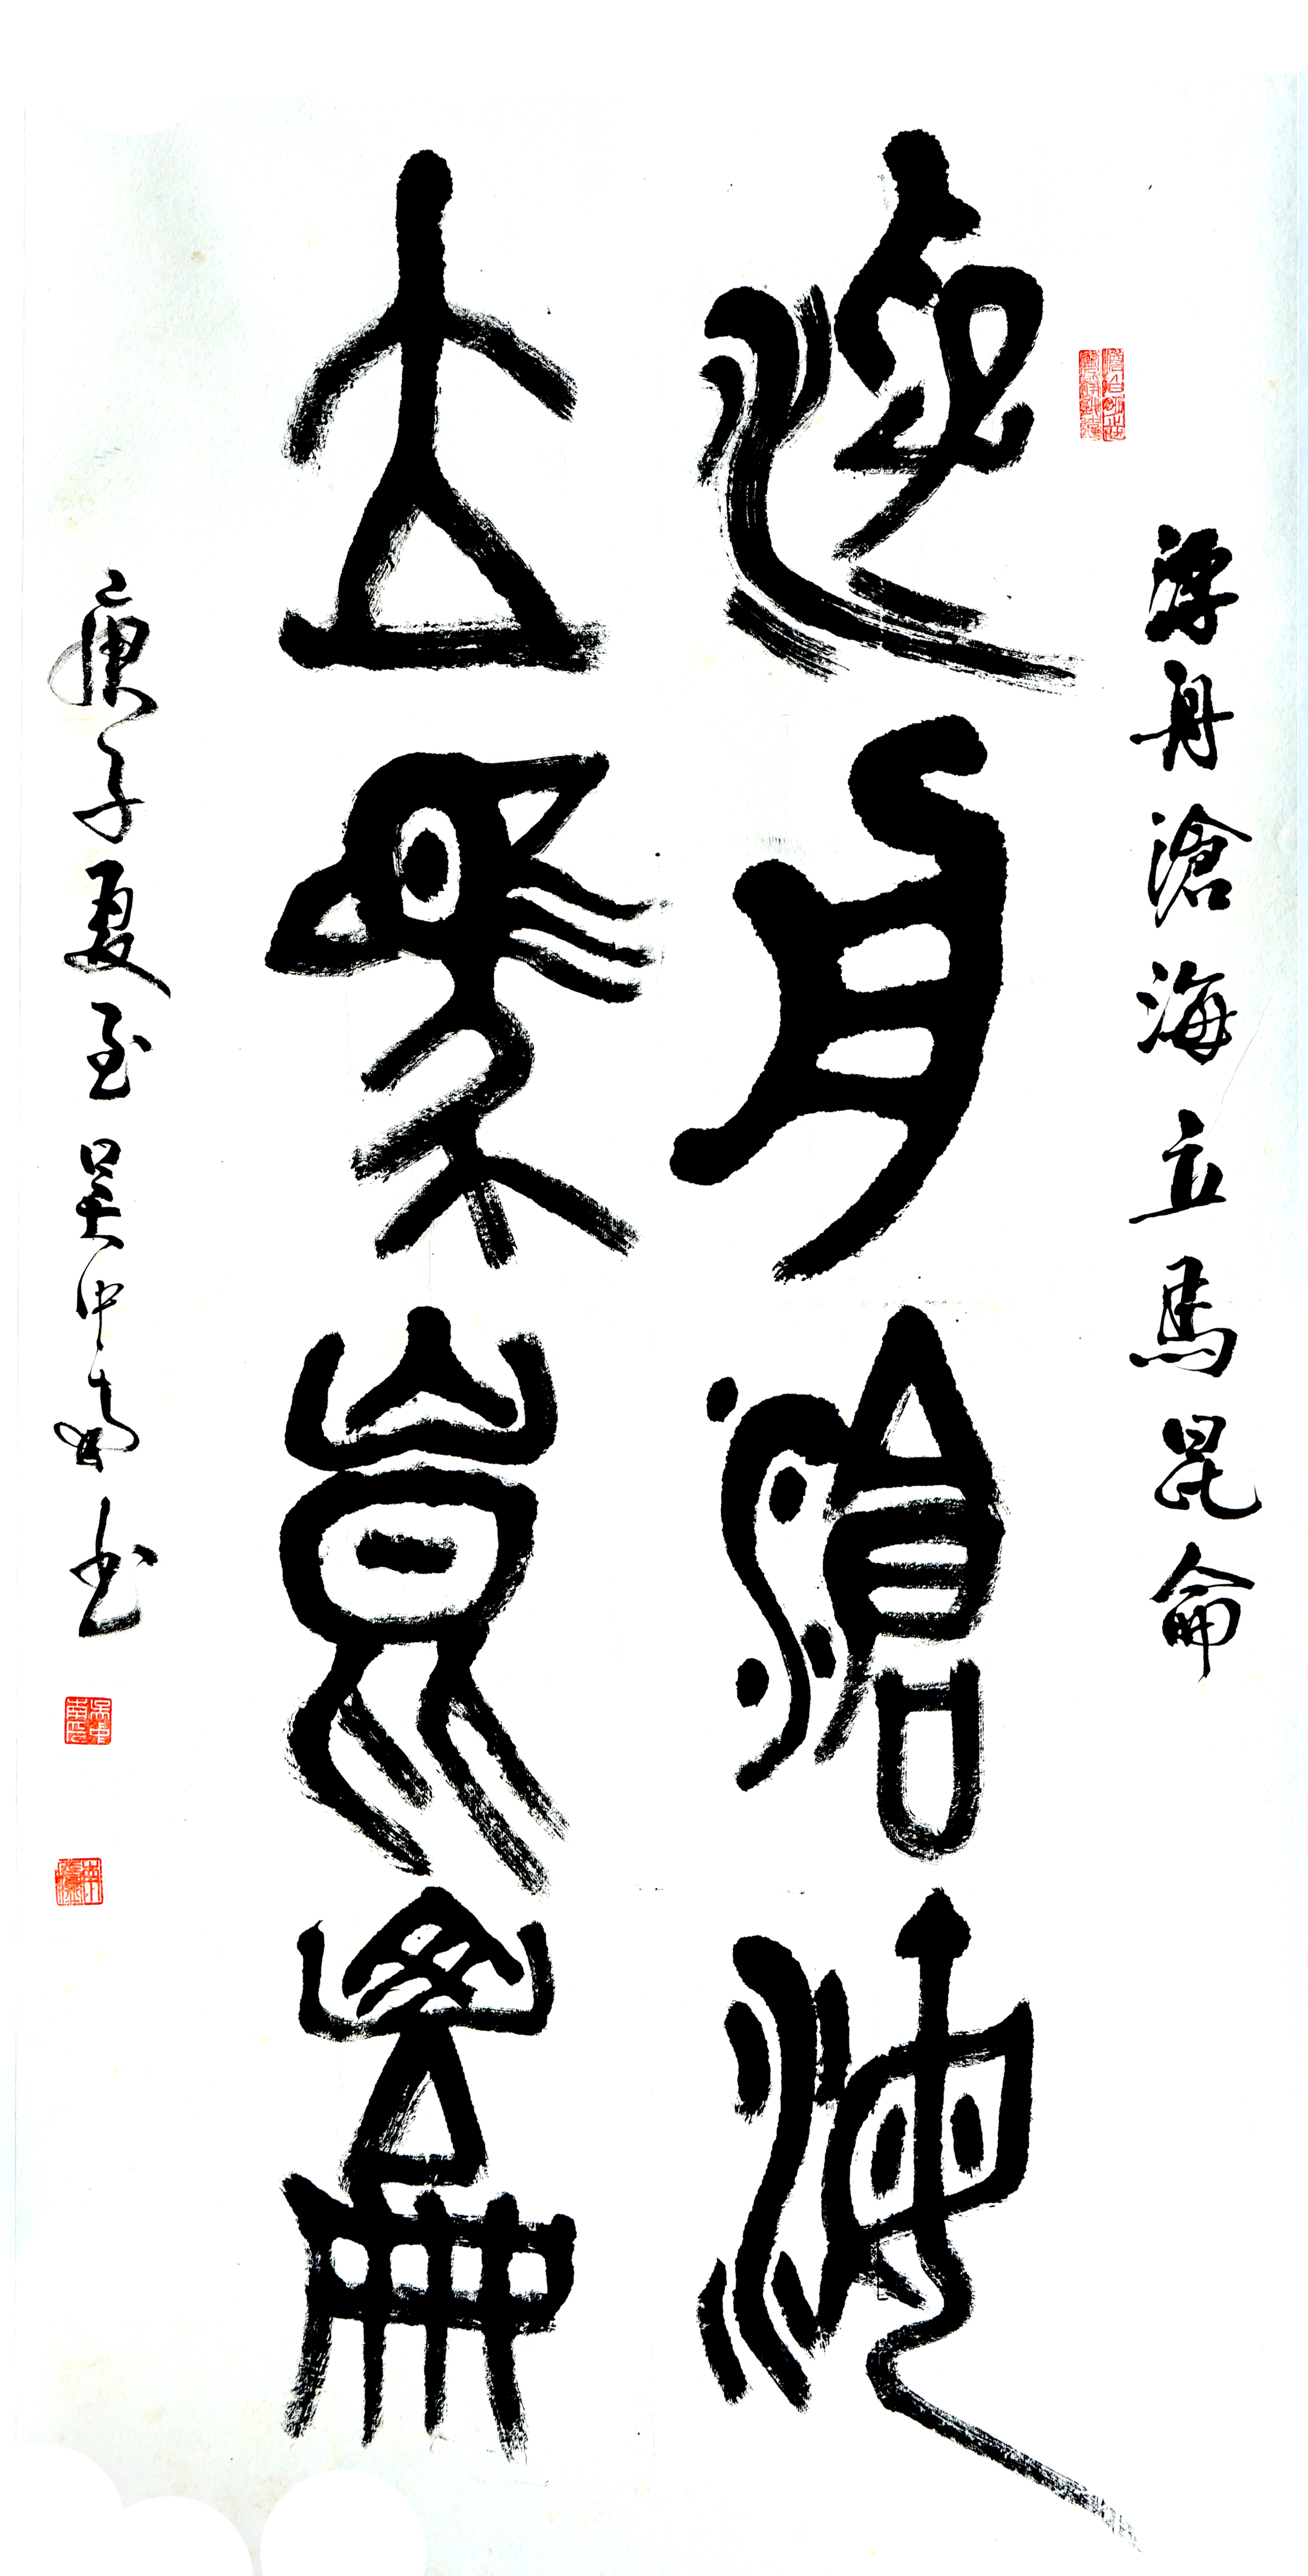 浮舟滄海
立馬崑崙
浮舟滄海立馬昆侖
庚子夏至吴中南书